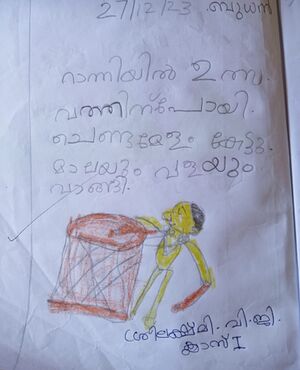 27/12/23 ബുധൻ
റാന്നിയിൽ ഉത്സ
വത്തിന്പോയി.
ചെണ്ടമേളം കേട്ടു.
മാലയും വളയും
വാങ്ങി.
ശ്രീലക്ഷ്മി. വി.ജി.
ക്ലാസ് I